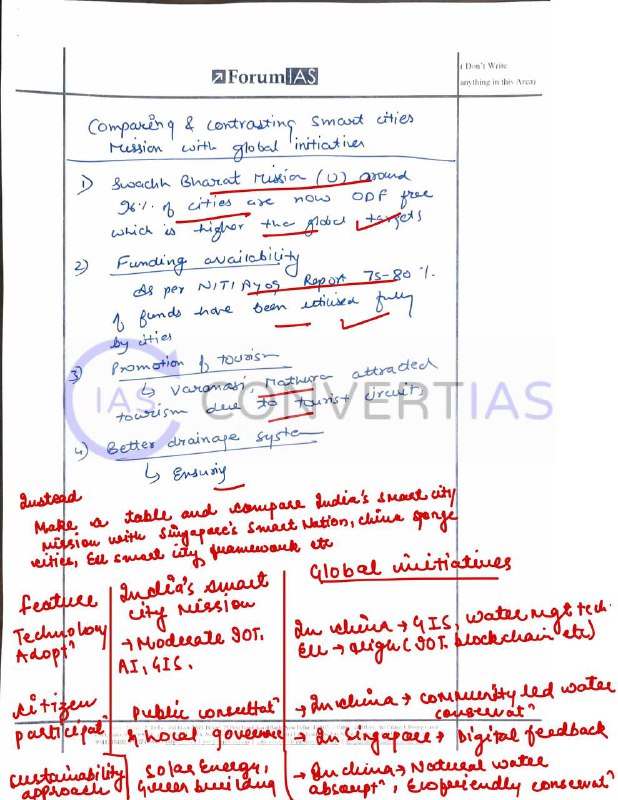 ForumIAS
( Don't Write
anything in this Area)
Comparing & contrasting smart cities
Mission with global initiatives
1) Swachh Bharat Mission (U) around
96% of cities are now ODF free
which is higher the global targets
2) Funding availability
As per NITI Ayog Report 75-80%
of funds have been utilised fully
by cities
3) Promotion of tourism
↳ Varanasi, Mathura attracted
tourism due to tourist circuits
IAS CONVERTIAS
4) Better drainage system
↳ Ensuring
Instead
Make a table and compare India's smart city
mission with Singapore's Smart Nation, China sponge
cities, EU smart city framework etc
Feature India's smart city Mission Global initiatives
Technology Adoptn → Moderate IOT, AI, GIS. In China → GIS, water mgt tech.
EU → High (IOT, blockchain etc)
Citizen participatn Public consultatn & local governce → In China → community led water conservatn
→ In Singapore → Digital feedback
Sustainability approach Solar Energy, Green building → In China → Natural water
absorptn, Ecofriendly conservatn